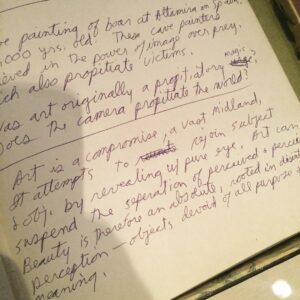 ve painting of boar at Altamira in Spain,
,000 yrs. old. These cave painters
ieved in the power of image over prey.
ich also propitiate victims.
Was art originally a propitiatory magic?
Does the camera propitiate the world?
Art is a compromise, a vast midland,
It attempts to rejoin subject
& obj. by revealing w/ pure eye. Art can
suspend the seperation of perceived & percei
Beauty is therefore an absolute, rooted in
perception — objects devoid of all purpose &
meaning.